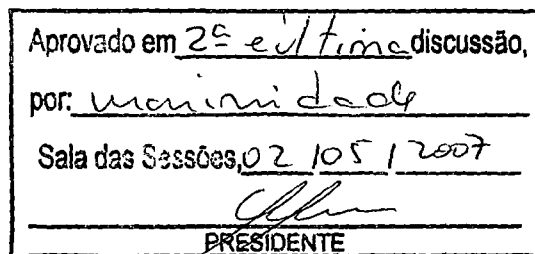 Aprovado em 2ª e última discussão,
por: unanimidade
Sala das Sessões, 02 / 05 / 2007
PRESIDENTE